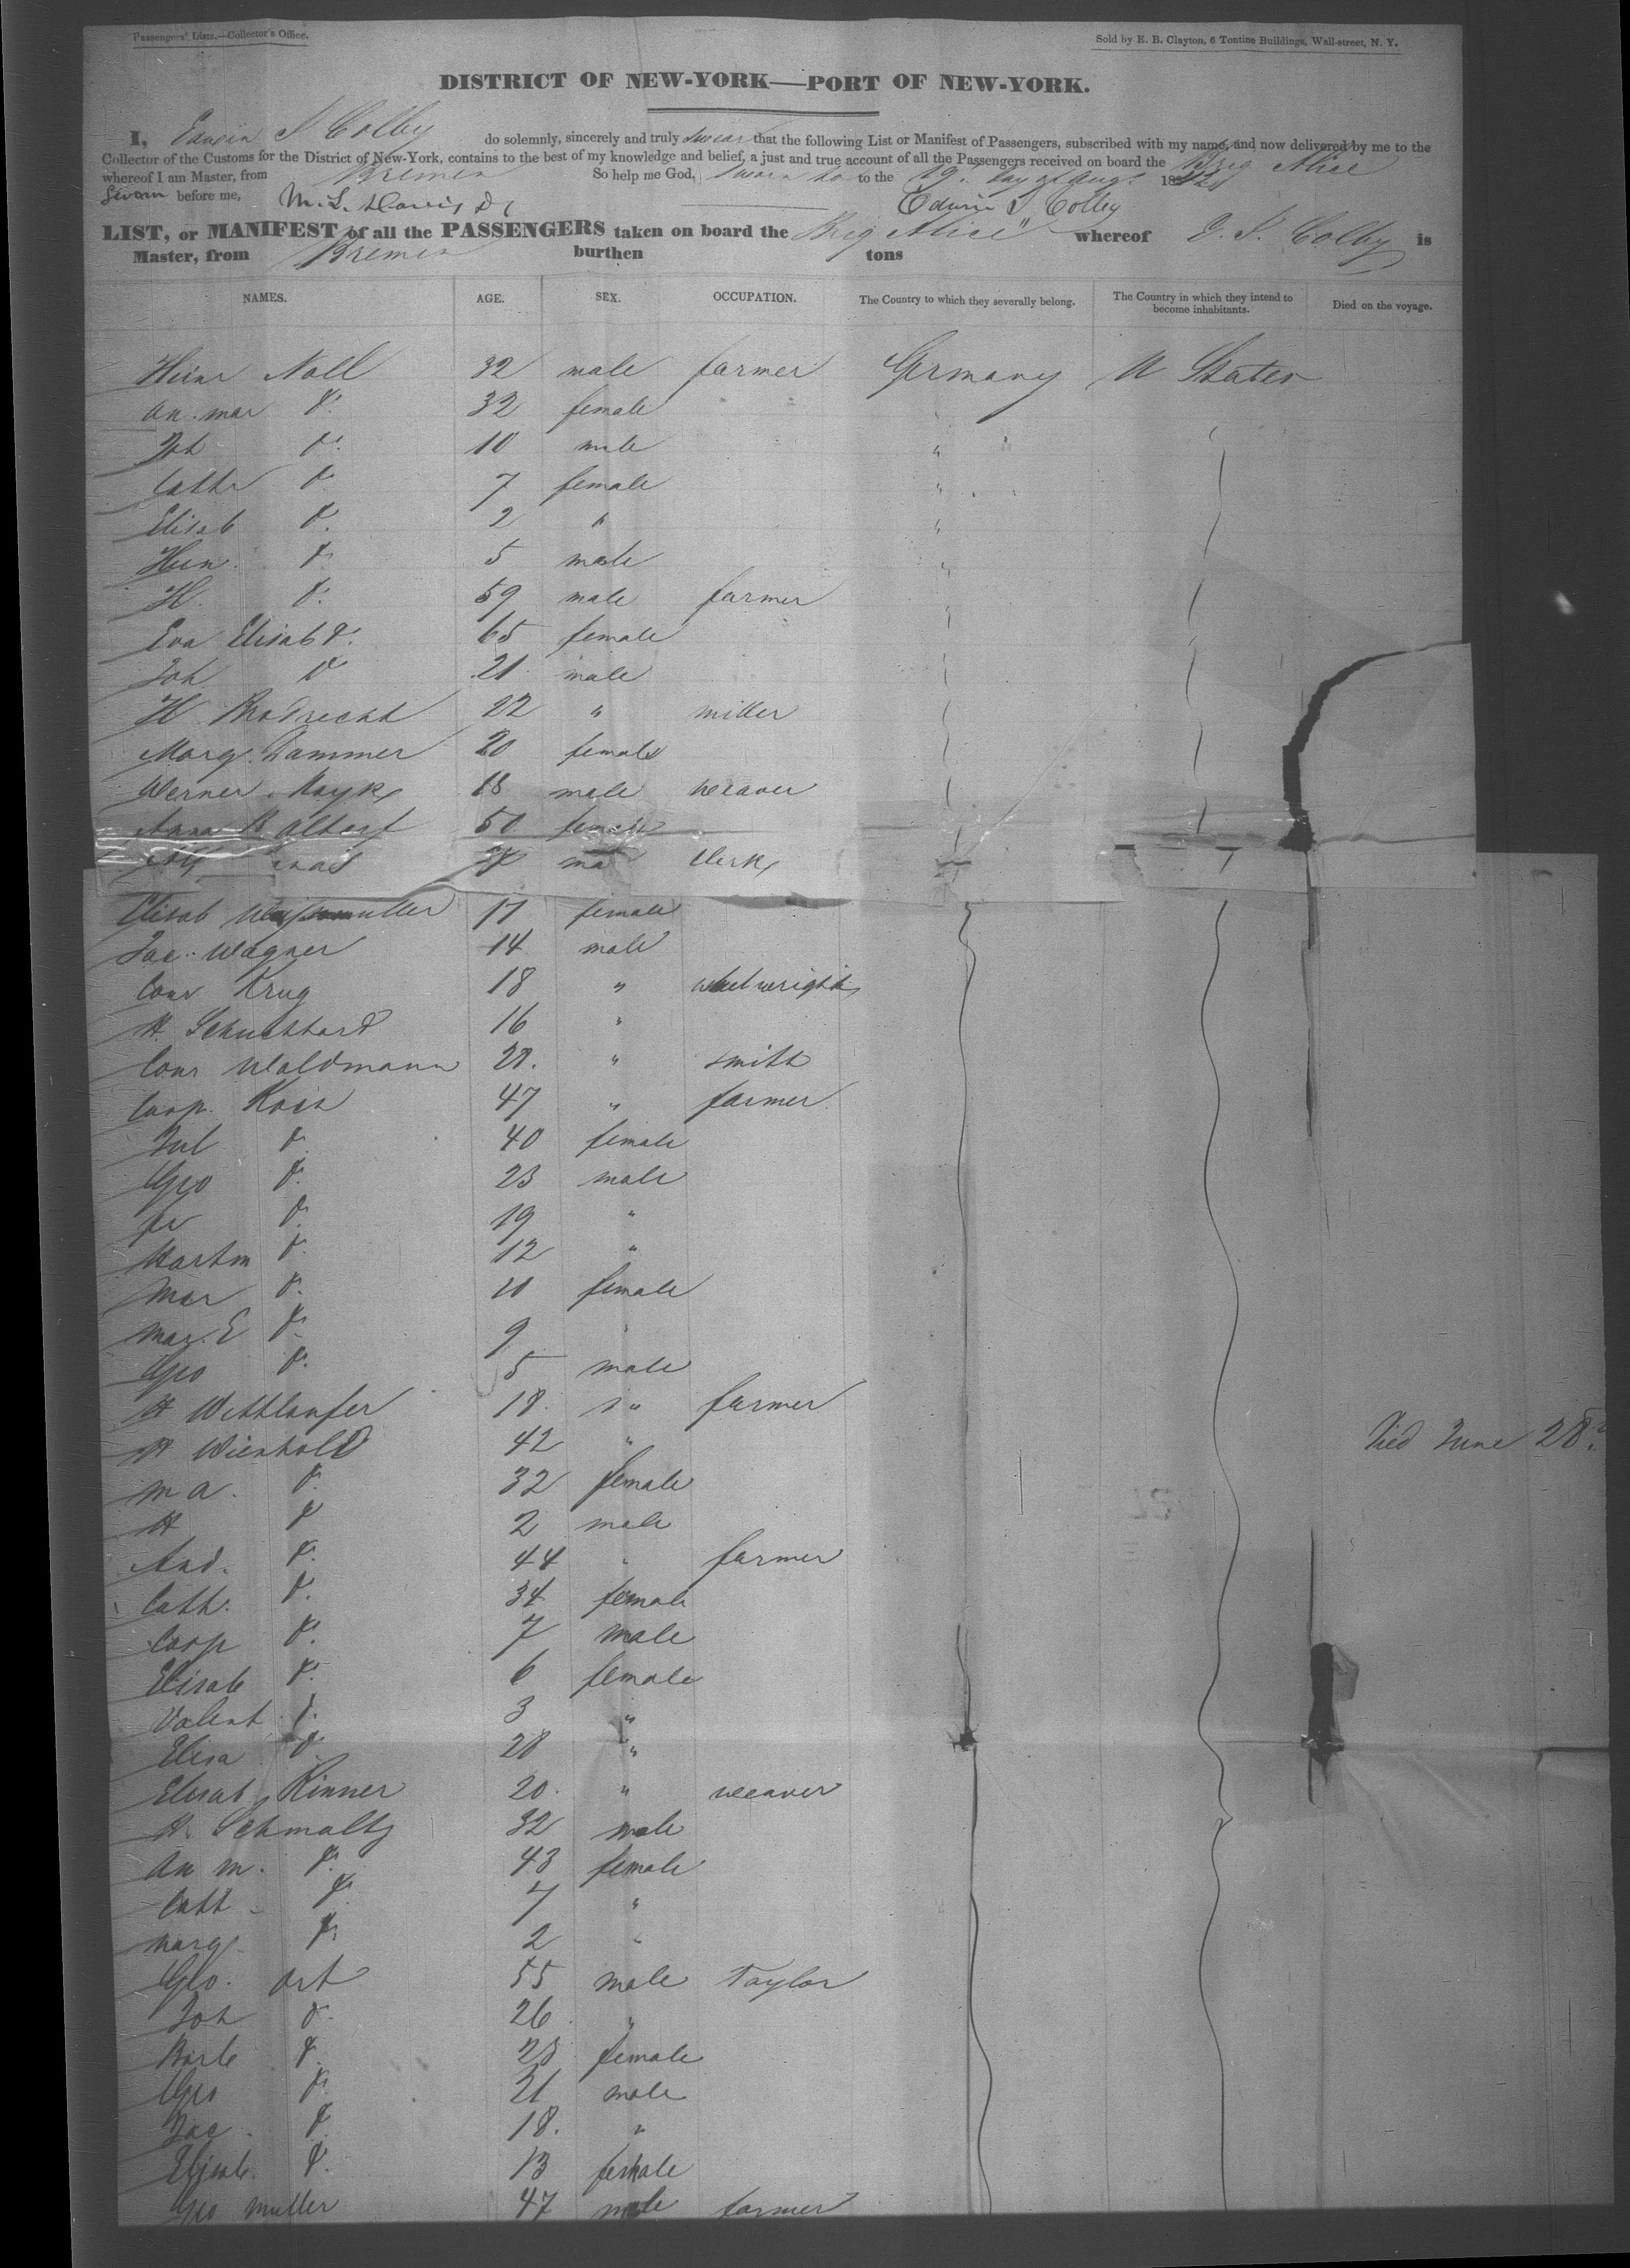 Passengers' Lists.—Collector's Office.
Sold by E. B. Clayton, 6 Tontine Buildings, Wall-street, N. Y.
DISTRICT OF NEW-YORK—PORT OF NEW-YORK.
I, Edwin S Colby do solemnly, sincerely and truly swear that the following List or Manifest of Passengers, subscribed with my name, and now delivered by me to the
Collector of the Customs for the District of New-York, contains to the best of my knowledge and belief, a just and true account of all the Passengers received on board the Brig Alice
whereof I am Master, from Bremen So help me God. Sworn to to the 19th day of Aug. 18
Sworn before me, Edwin S Colby
LIST, or MANIFEST of all the PASSENGERS taken on board the Brig Alice" whereof E. S. Colby is
Master, from Bremen burthen tons
NAMES. AGE. SEX. OCCUPATION. The Country to which they severally belong. The Country in which they intend to become inhabitants. Died on the voyage.
Heinr Noll 32 male farmer Germany U States
An. mar d. 32 female
Joh d. 10 male "
Cathr d 7 female "
Elisab d. 2 " "
Hein. d. 5 male "
H. d. 59 male farmer
Eva Elisab d. 65 female
Joh d 21 male
H Brodrecht 22 " miller
Marg. 20 female
Werner 18 male weaver
Anna 50 female
clerk
Elisab 17 female
Jac. Wagner 14 male
Conr Krug 18 " wheelwright
H. Schuchhard 16 "
Conr Waldmann 28. " smith
Casp. 47 " farmer
Jul d. 40 female
Geo d. 23 male
d. 19 "
Hartm d. 12 "
Mar d. 10 female
Mar. E d. 9 "
Geo d. 5 male
H Wettlaufer 18. " farmer
H Wienhold 42 " Died June 28th
M A. d. 32 female
H d 2 male
And. d. 44 " farmer
Cath. d. 34 female
Casp d. 7 male
Elisab d. 6 female
Valent d. 3 "
Elisa d 28 "
Elisab Kinner 20. " weaver
H. Schmaltz 32 male
An m. d. 43 female
Cath d. 7 "
Marg d. 2 "
Geo. Ort 55 male Taylor
Joh d. 26 "
Barb d. 23 female
Geo d. 21 male
Jac. d. 18. "
Elisab. d. 13 female
Geo Muller 47 male farmer